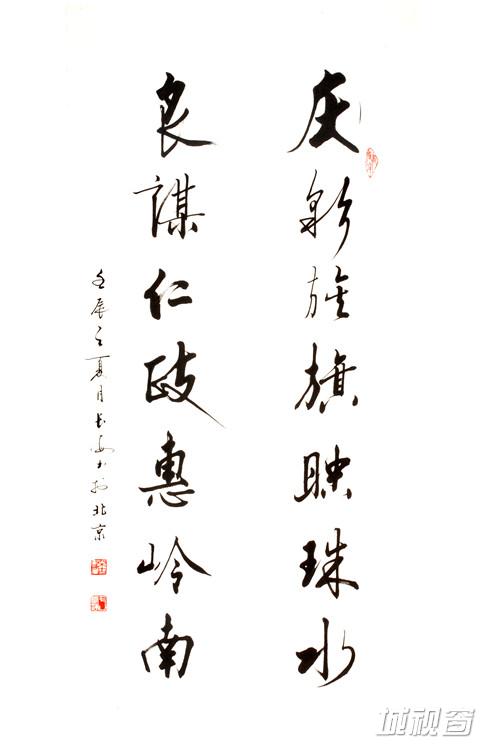 庆新旌旗映珠水
良謀仁政惠岭南
壬辰之夏月长安书於北京
城视窗